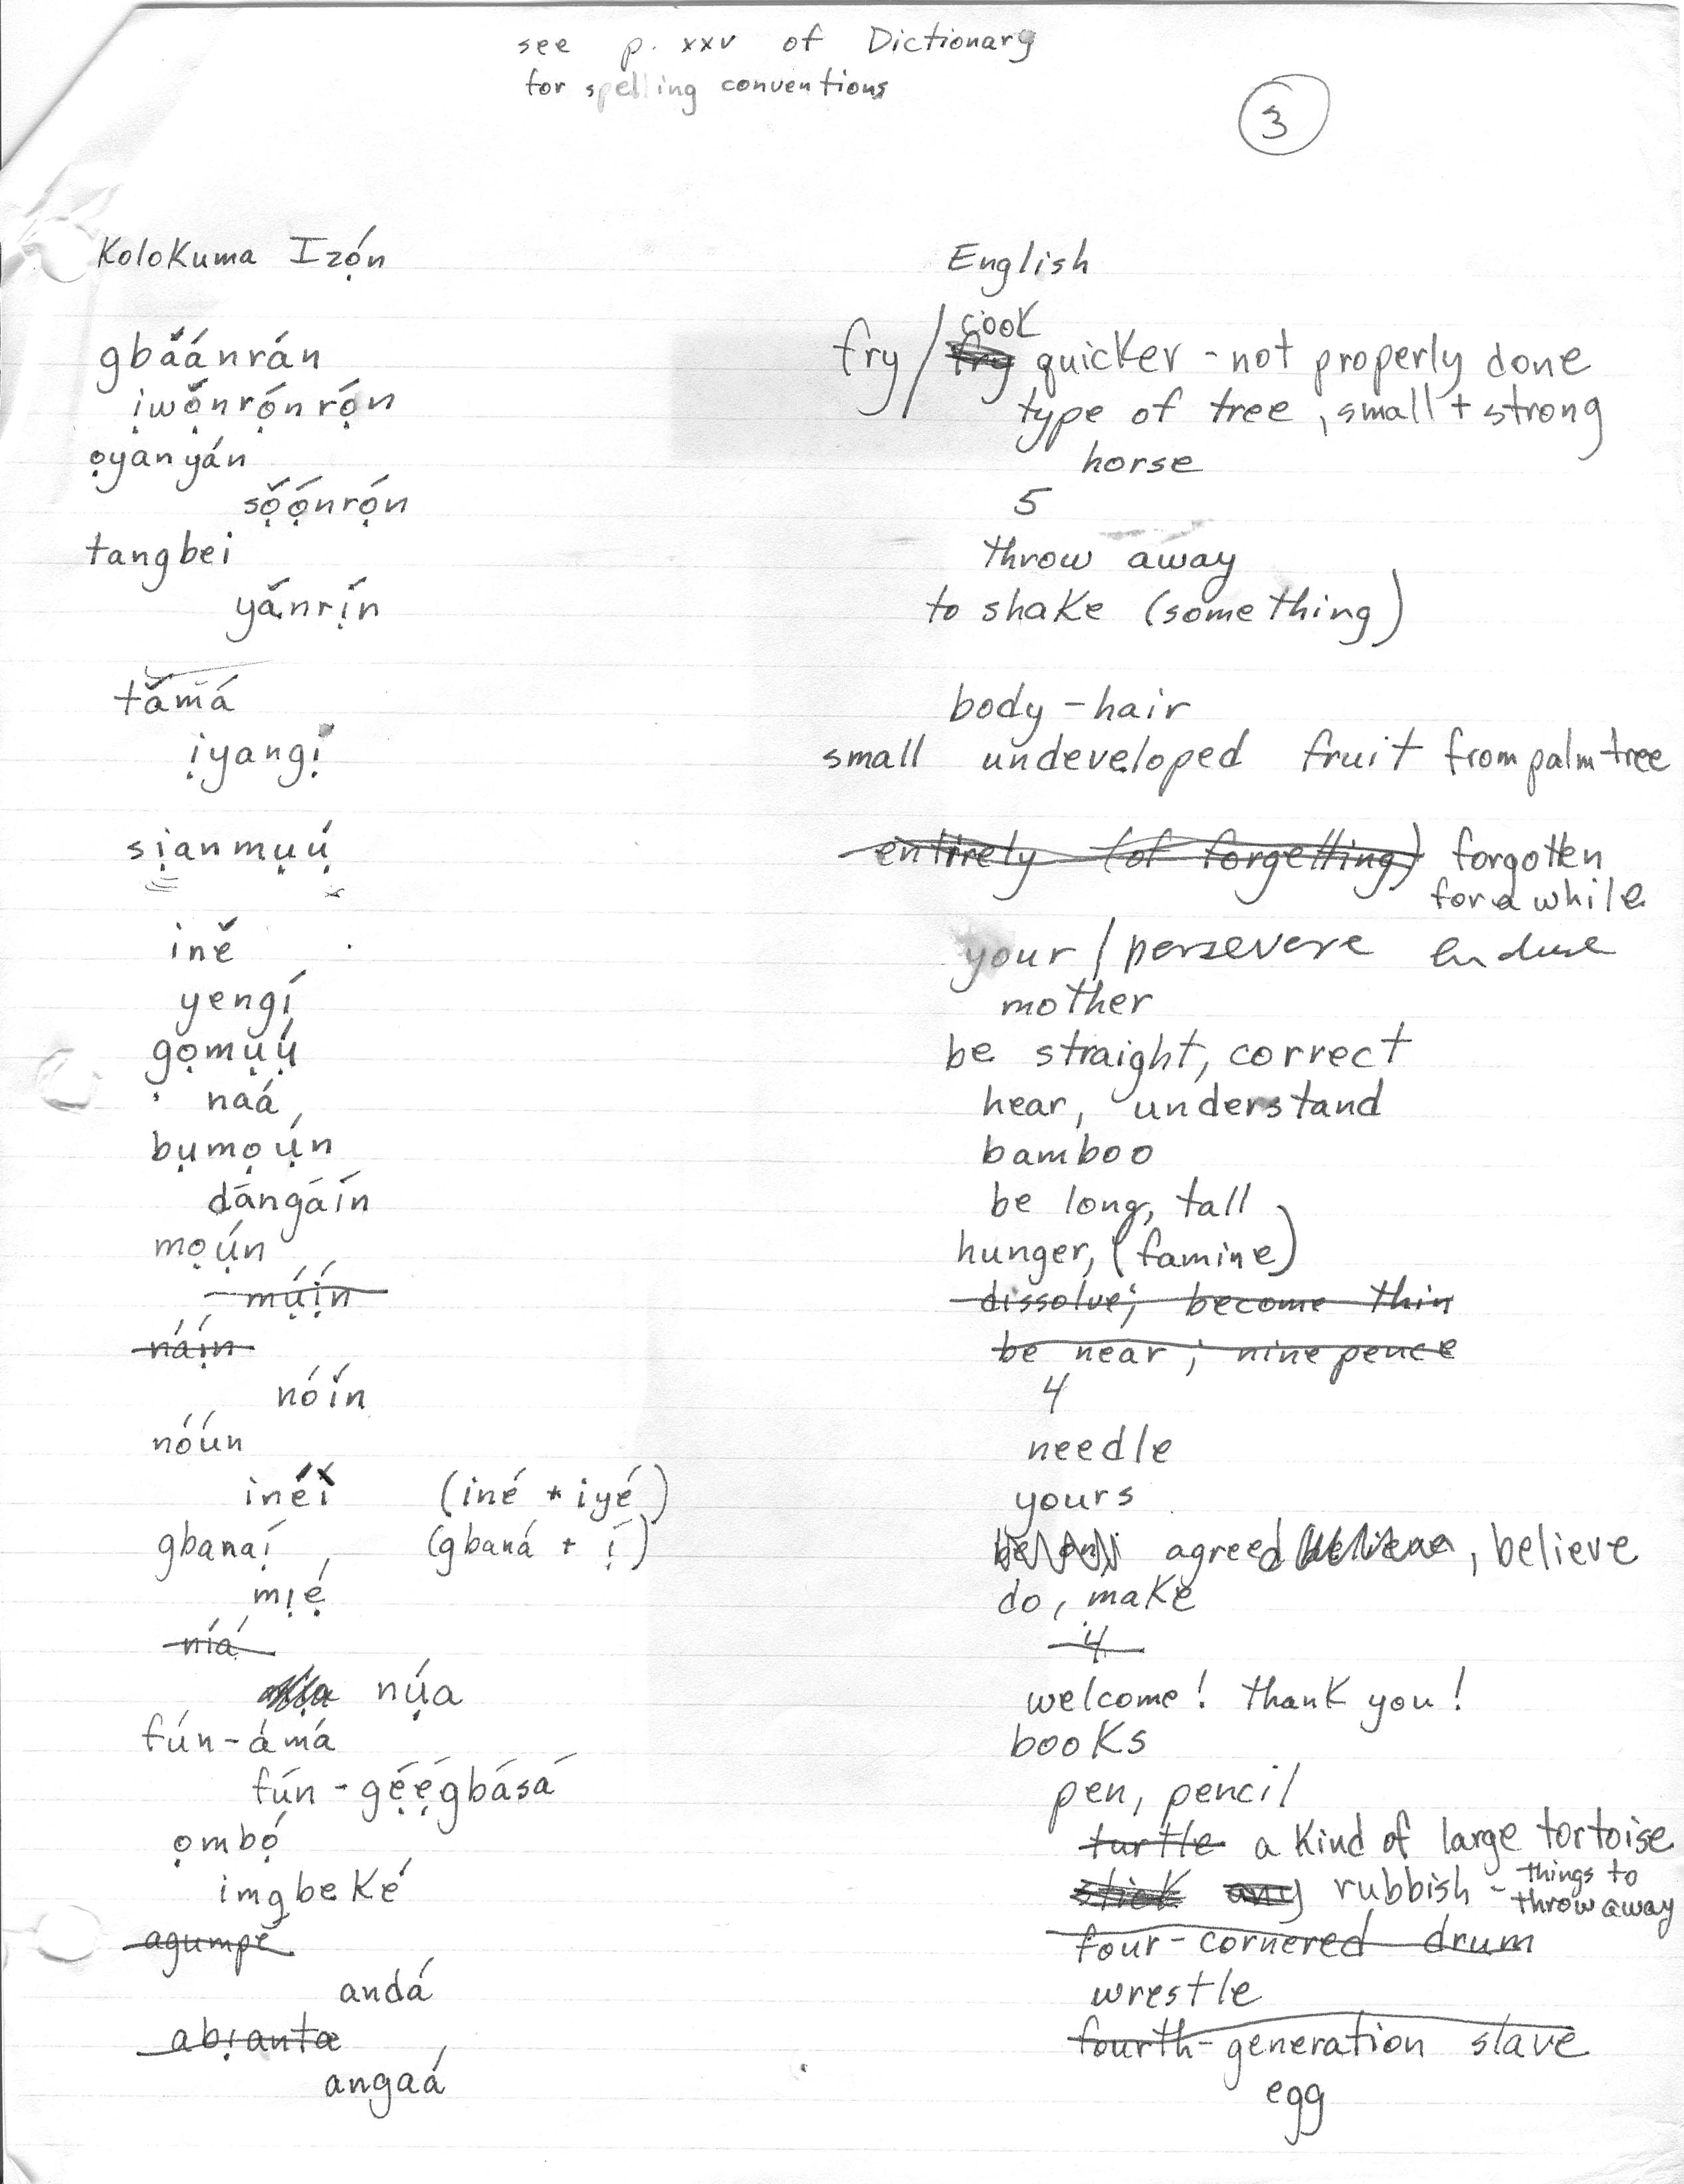 see p. xxv of Dictionary
for spelling conventions
3
Kolokuma Izọ́n English
gbǎánrán fry / cook ~~fry~~ quicker - not properly done
ịwọ̌nrọ́nrọ́n type of tree, small + strong
ọyanyán horse
sọ̌ọ́nrọ́n 5
tangbei throw away
yǎnrị́n to shake (something)
tǎmá body-hair
ịyangị small undeveloped fruit from palm tree
sịanmụụ́ ~~entirely (of forgetting)~~ forgotten
for a while
ině your / persevere endure
yengí mother
gọmụ́ụ́ be straight, correct
naá hear, understand
bụmọụ́n bamboo
dángáín be long, tall
mọụ́n hunger, (famine)
~~mụ́ị́n~~ ~~dissolve; become thin~~
~~náị́n~~ ~~be near; ninepence~~
nóín 4
nóún needle
inéi (iné + iyé) yours
gbanaị́ (gbaná + ị́) agreed, believe
mịẹ́ do, make
~~níá~~ ~~4~~
nụ́a welcome! thank you!
fún-ámá books
fún-gẹ́ẹ́gbásá pen, pencil
ọmbọ́ ~~turtle~~ a kind of large tortoise
imgbeké ~~stick~~ ~~any~~ rubbish - things to
throw away
~~agumpě~~ ~~four-cornered drum~~
andá wrestle
~~abịanta~~ ~~fourth-generation slave~~
angaá egg